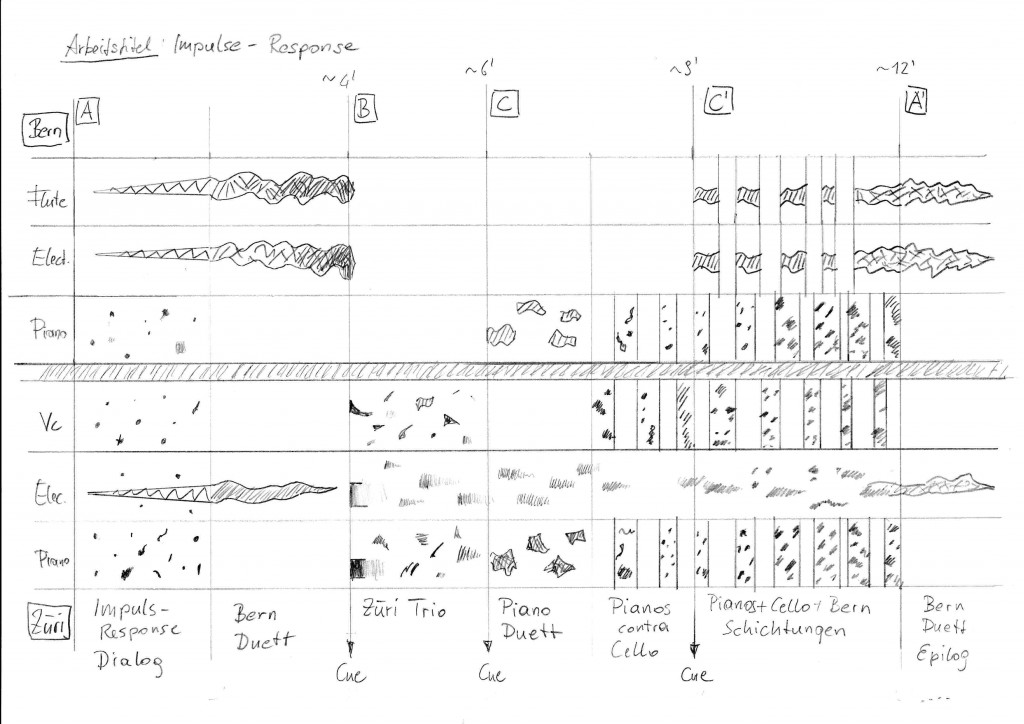 Arbeitstitel: Impulse - Response
~4' ~6' ~9' ~12'
A B C C' A'
Bern
Flute
Elect.
Piano
Vc
Elec.
Piano
Züri
Impuls-
Response
Dialog
Bern
Duett
Züri Trio
Piano
Duett
Pianos
contra
Cello
Pianos + Cello + Bern
Schichtungen
Bern
Duett
Epilog
Cue Cue Cue